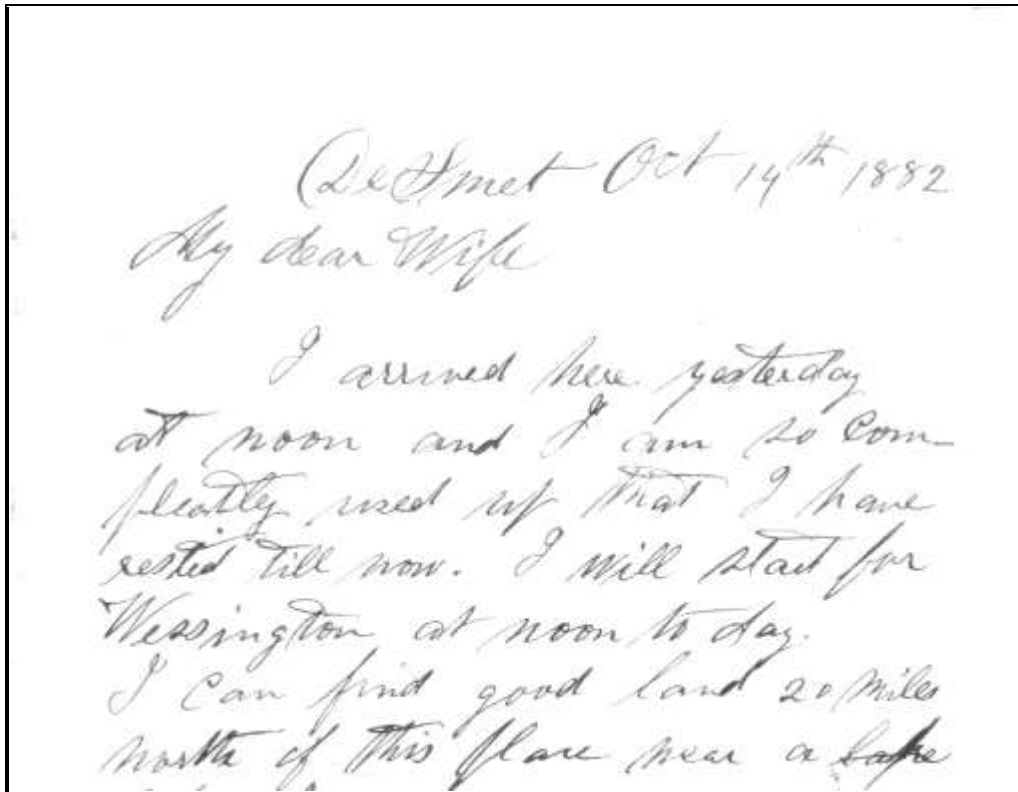 De Smet Oct 14th 1882
My dear Wife
I arrived here yesterday
at noon and I am so Com-
pleatly used up that I have
rested till now. I will start for
Wessington at noon to day.
I Can find good land 20 Miles
north of this place near a Lake